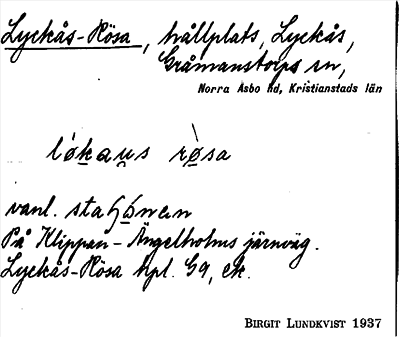 Lyckås-Rösa, hållplats, Lyckås,
Gråmanstorps sn,
Norra Åsbo hd, Kristianstads län
lo̱kau̱s rø̱sa
vanl. staɧo̱nen
På Klippan - Ängelholms järnväg.
Lyckås-Rösa hpl. G9, ek.
BIRGIT LUNDKVIST 1937